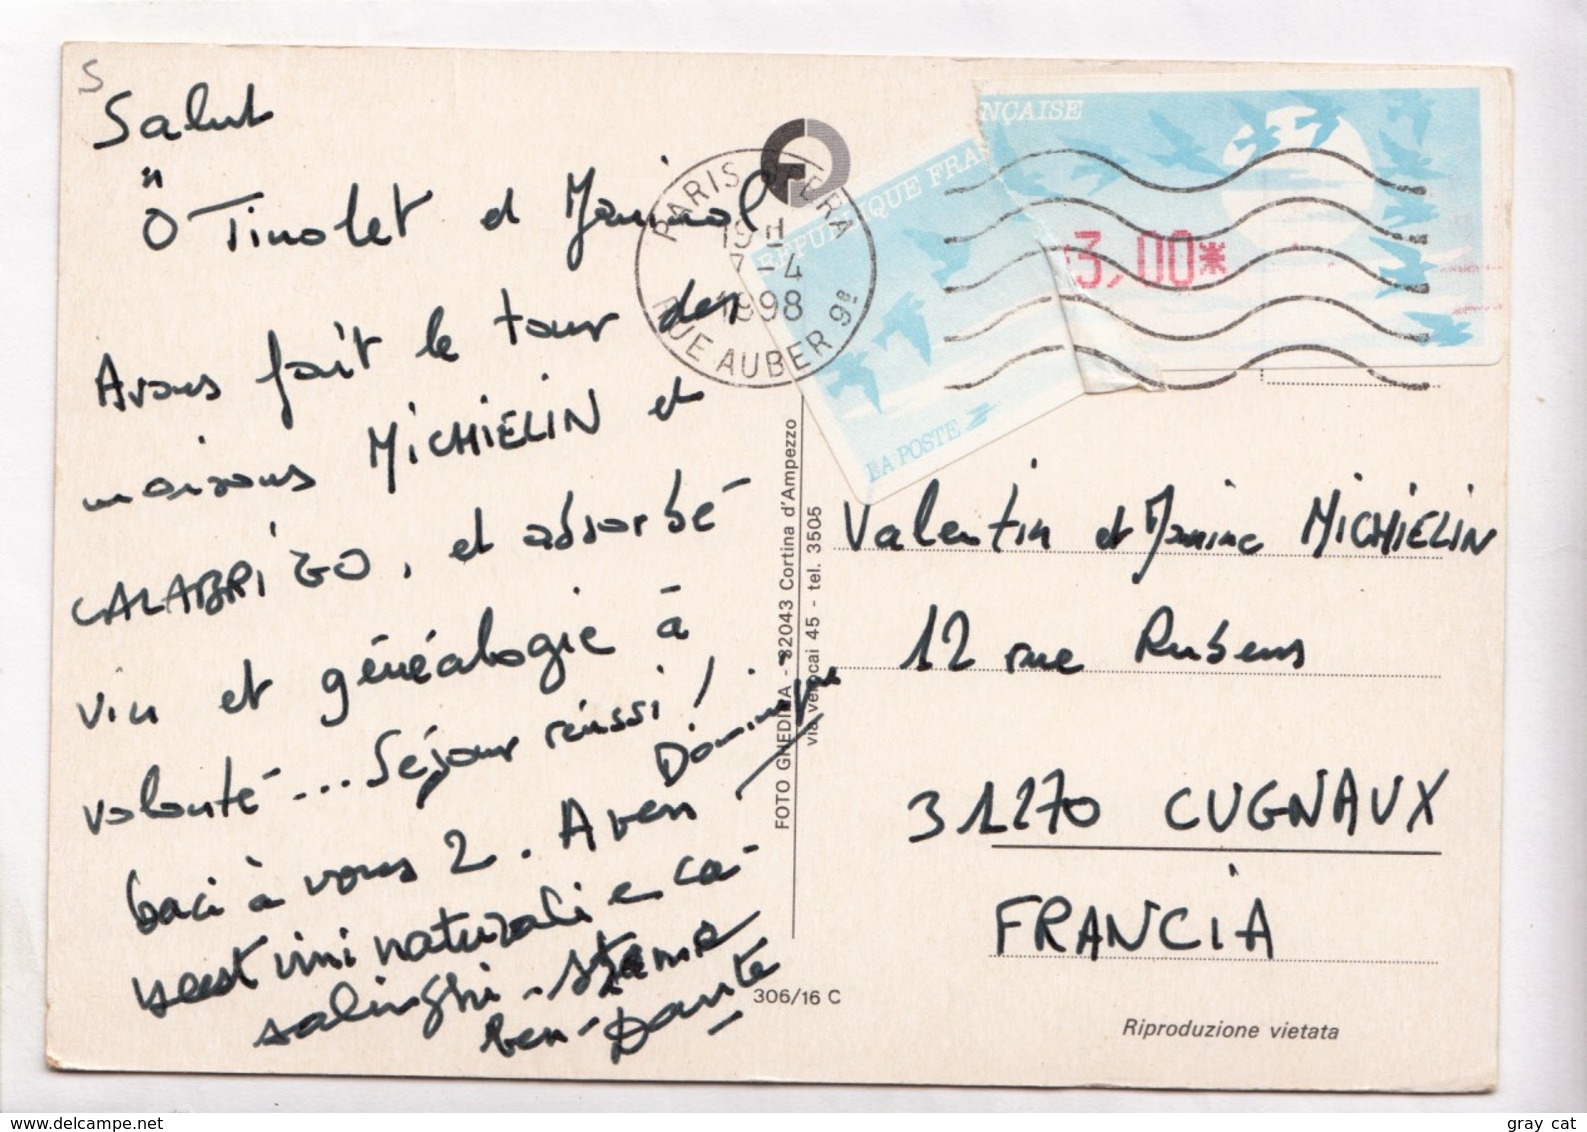 S
Salut
ö Tinolet et Janinol
Avons fait le tour des
maisons MICHIELIN et
CALABRIGO, et absorbé
vin et généalogie à
volonté... Séjour réussi!
Dominique
baci à vous 2. Aven
vini naturali e ca-
salinghi - stame
ben - Dante
PARIS OPERA
19H
7-4
1998
RUE AUBER 9e
RÉPUBLIQUE FRANÇAISE
3,00*
LA POSTE
FOTO GHEDINA - 32043 Cortina d'Ampezzo
via Verocai 45 - tel. 3505
Valentin et Janine MICHIELIN
12 rue Rubens
31270 CUGNAUX
FRANCIA
306/16 C
Riproduzione vietata
www.delcampe.net
gray cat